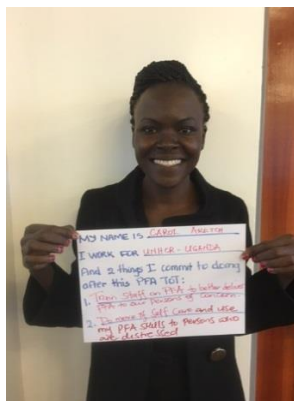 MY NAME IS CAROL
I WORK FOR UNHCR - UGANDA
And 2 things I commit to doing
after this PFA TOT:
1. Train Staff on PFA to better deliver
PFA to our persons of concern
2. Do more of Self Care and use
my PFA Skills to persons who
are distressed